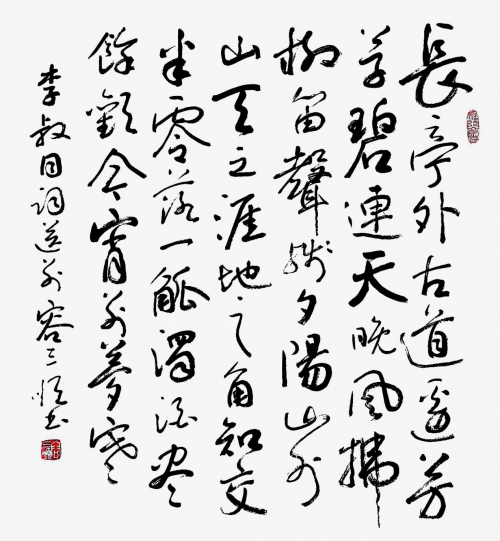 長亭外古道邊芳
草碧連天晚風拂
柳笛聲殘夕陽山外
山天之涯地之角知交
半零落一觚濁酒盡
餘歡今宵別夢寒
李叔同詞送別書